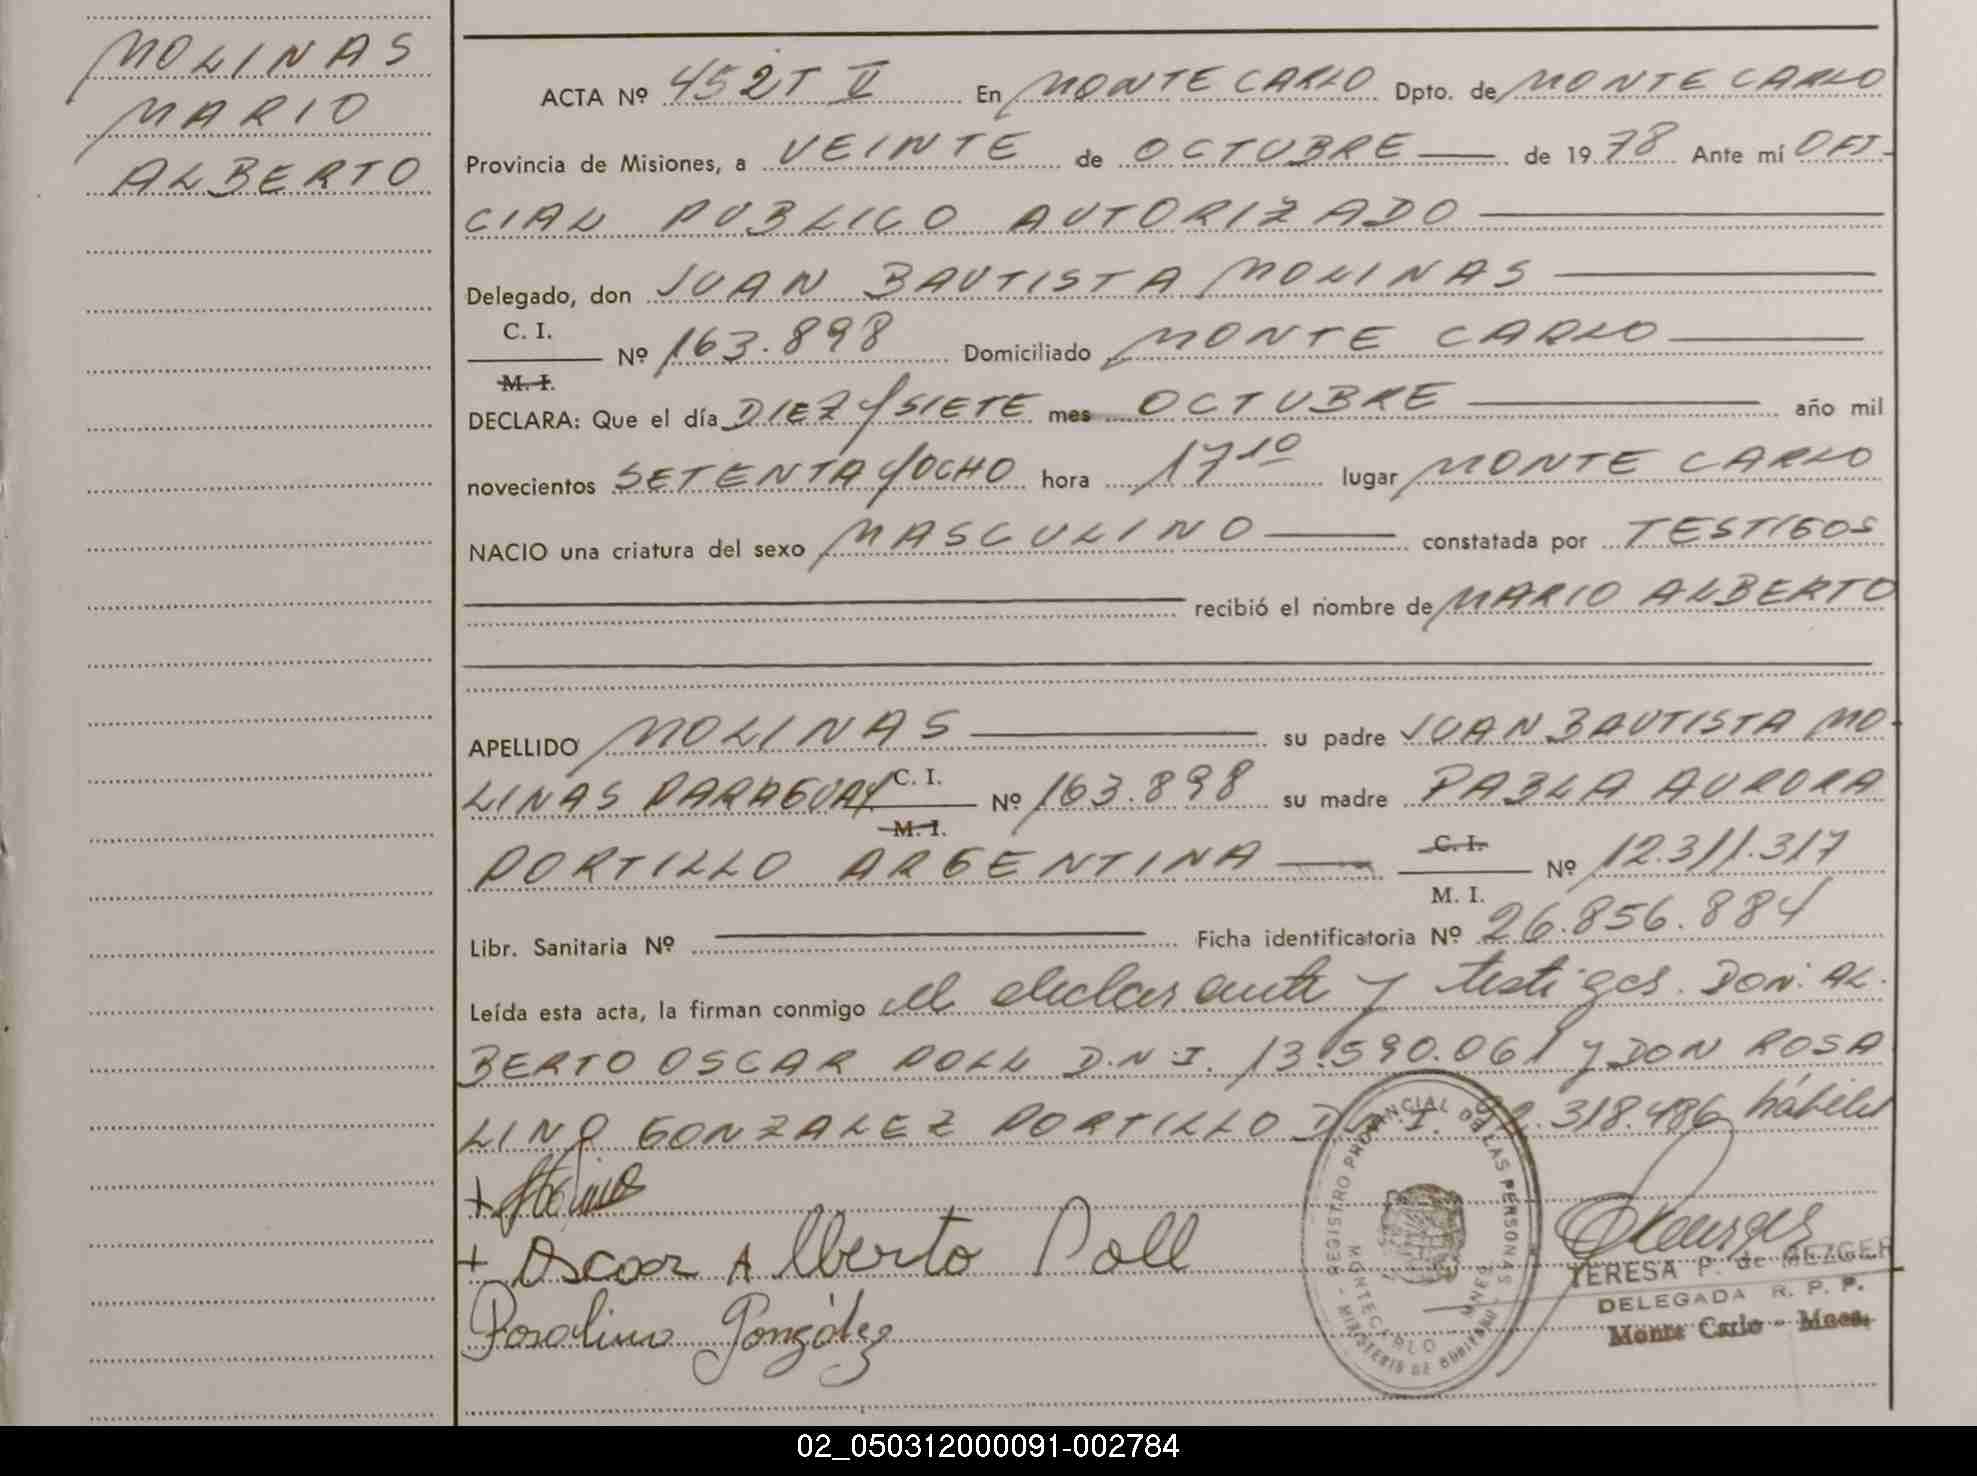 MOLINAS
MARIO
ALBERTO
ACTA Nº 452T II En MONTE CARLO Dpto. de MONTE CARLO
Provincia de Misiones, a VEINTE de OCTUBRE de 1978 Ante mí OFI-
CIAL PUBLICO AUTORIZADO
Delegado, don JUAN BAUTISTA MOLINAS
C. I.
Nº 163.898 Domiciliado MONTE CARLO
M. I.
DECLARA: Que el día DIEZ Y SIETE mes OCTUBRE año mil
novecientos SETENTA Y OCHO hora 17 10 lugar MONTE CARLO
NACIO una criatura del sexo MASCULINO constatada por TESTIGOS
recibió el nombre de MARIO ALBERTO
APELLIDO MOLINAS su padre JUAN BAUTISTA MO-
LINAS PARAGUAY C. I. Nº 163.898 su madre PABLA AURORA
M. I.
PORTILLO ARGENTINA C. I. Nº 12.311.317
M. I.
Libr. Sanitaria Nº Ficha identificatoria Nº 26.856.884
Leída esta acta, la firman conmigo el declarante y testigos. DON. AL-
BERTO OSCAR POLL D.N.I. 13.590.061 y DON ROSA
LINO GONZALEZ PORTILLO D.N.I. 92.318.486 hábiles
+
+ Oscar Alberto Poll
Rosalino González
REGISTRO PROVINCIAL DE LAS PERSONAS
MONTECARLO MNES
TERESA P. de MEZGER
DELEGADA R. P. P.
Monte Carlo - Mnes.
02_050312000091-002784